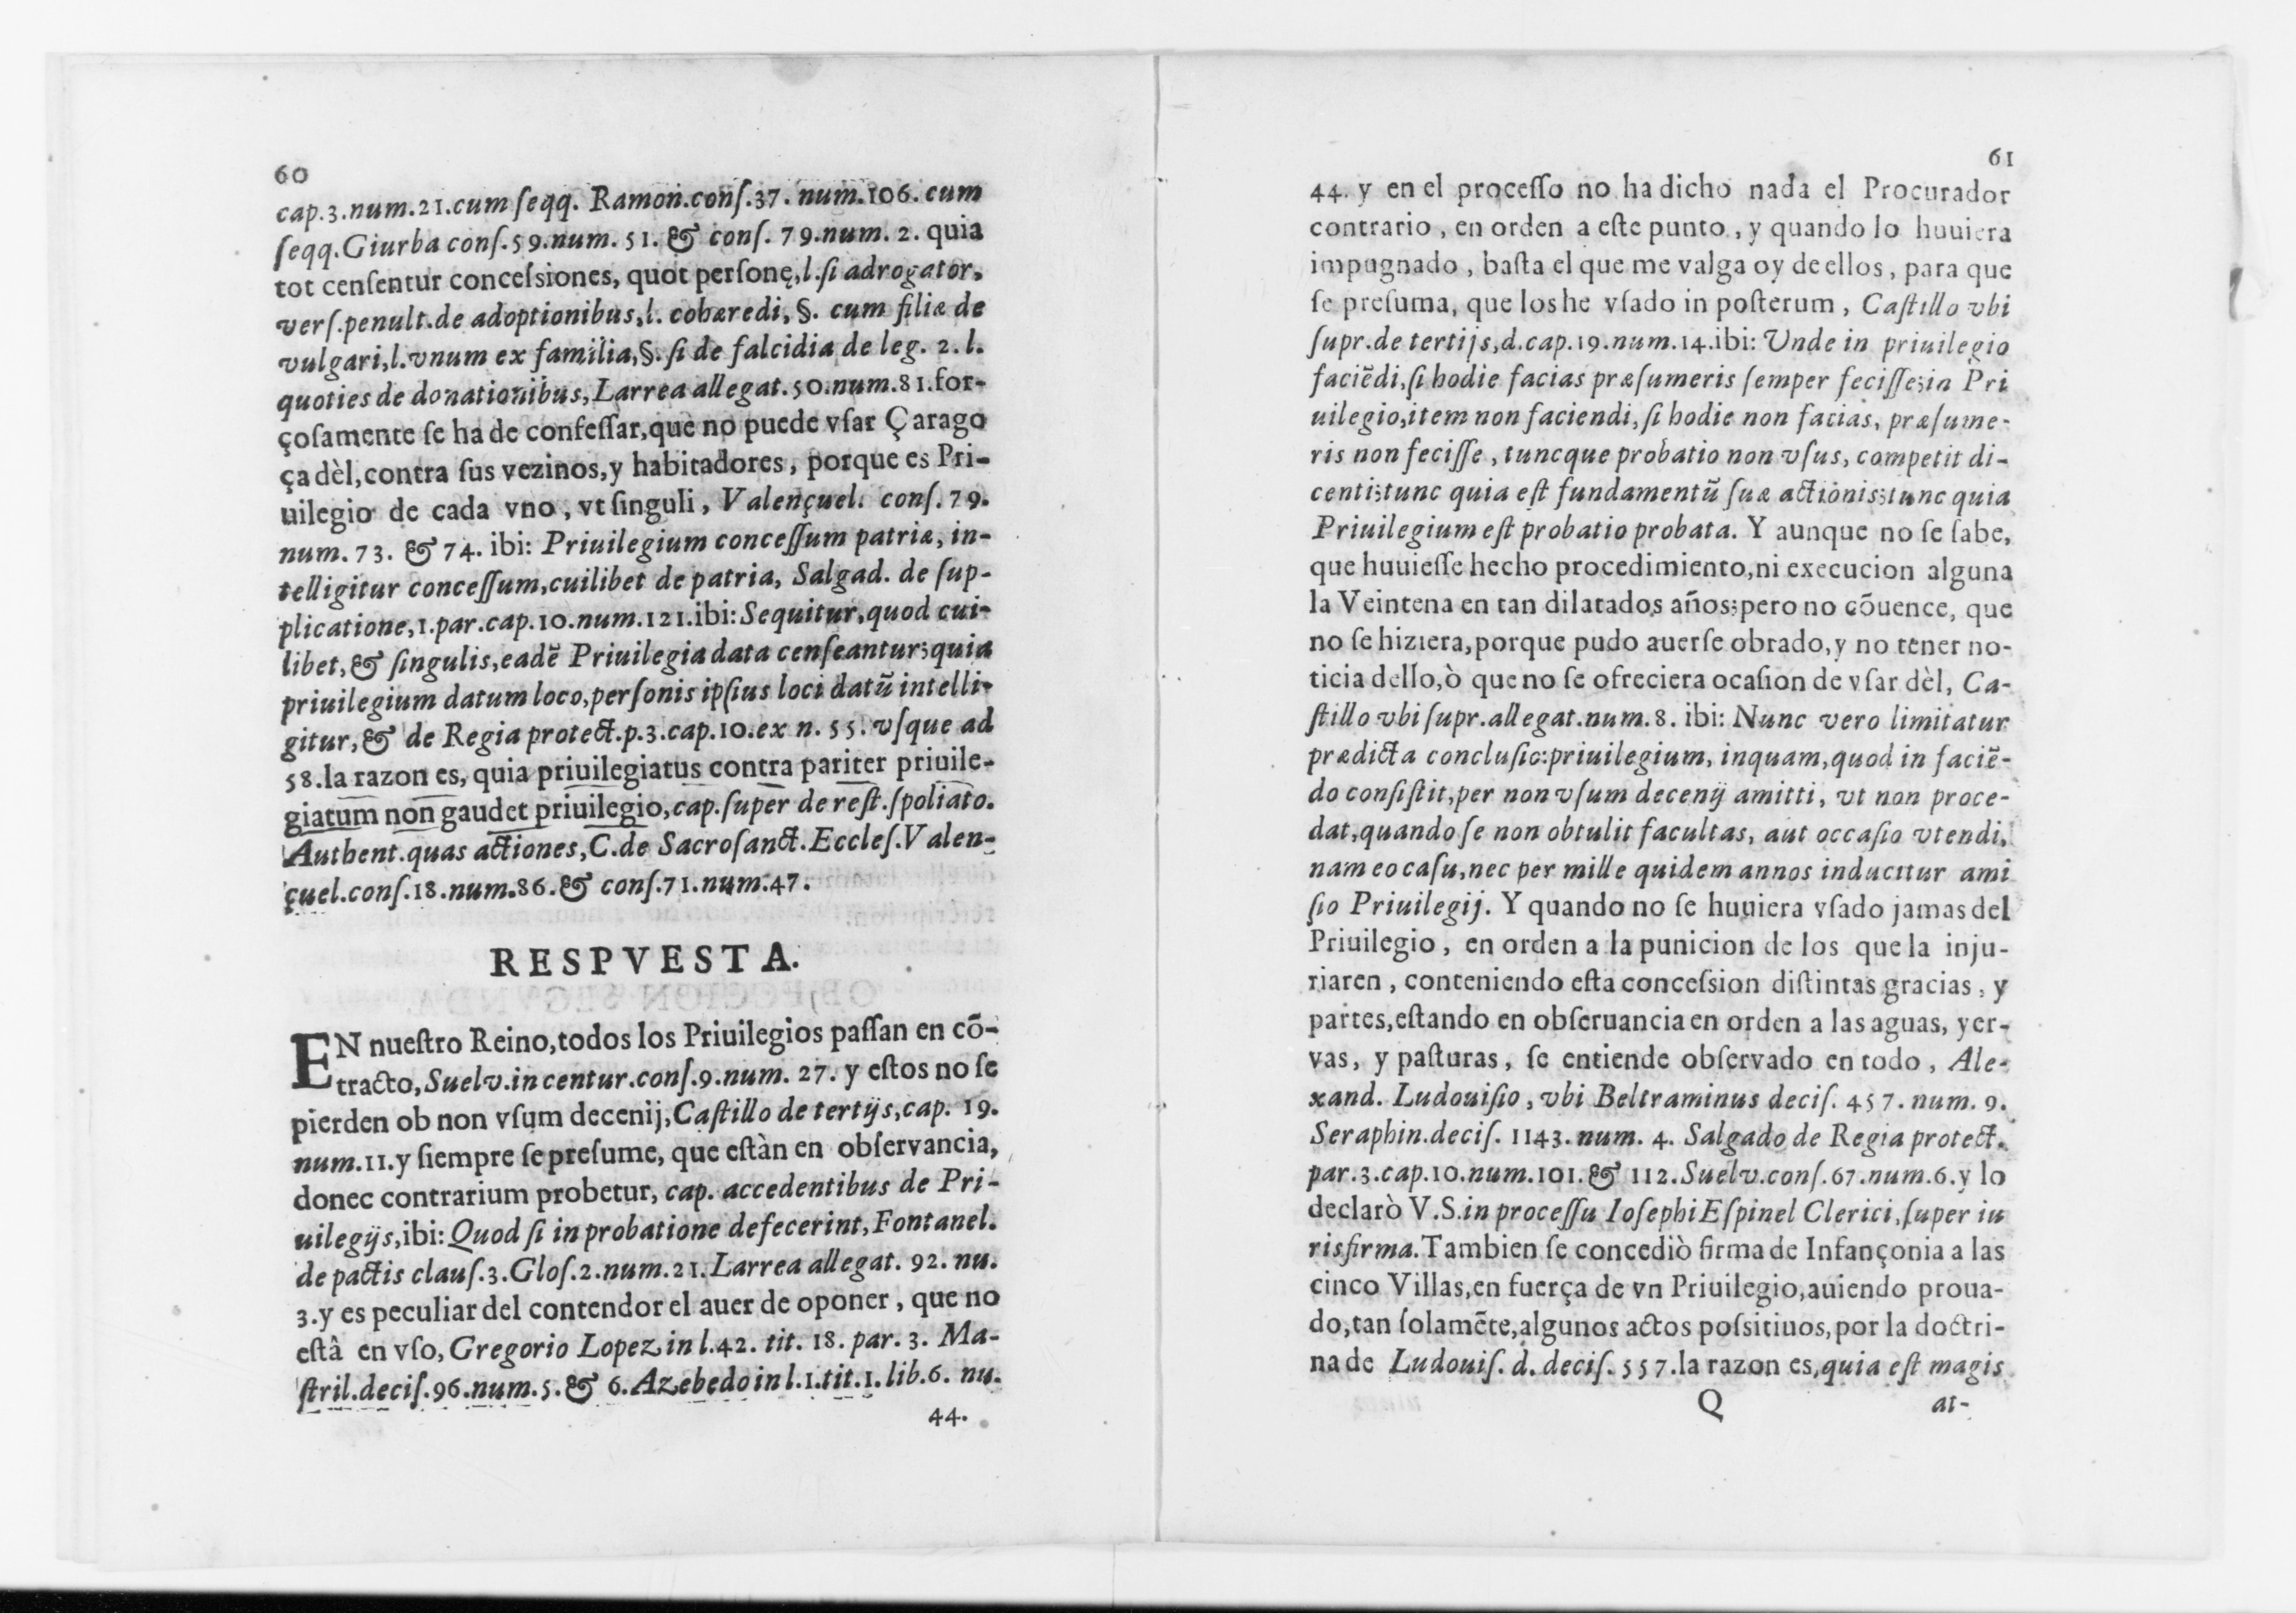 60
cap.3.num.21.cum ſeqq. Ramon.conſ.37. num.106. cum
ſeqq.Giurba conſ.59.num. 51. & conſ. 79.num. 2. quia
tot cenſentur conceſsiones, quot perſonę,l.ſi adrogator,
verſ.penult.de adoptionibus,l. cohæredi, §. cum filiæ de
vulgari,l.vnum ex familia,§.ſi de falcidia de leg. 2. l.
quoties de donationibus,Larrea allegat.50.num.81.for-
çoſamente ſe ha de confeſſar,que no puede vſar Çarago
ça dèl,contra ſus vezinos,y habitadores, porque es Pri-
uilegio de cada vno, vt ſinguli, Valençuel. conſ. 79.
num. 73. & 74. ibi: Priuilegium conceſſum patriæ, in-
telligitur conceſſum,cuilibet de patria, Salgad. de ſup-
plicatione,1.par.cap.10.num.121.ibi:Sequitur,quod cui-
libet,& ſingulis,eadẽ Priuilegia data cenſeantur;quia
priuilegium datum loco,perſonis ipſius loci datũ intelli-
gitur,& de Regia protect.p.3.cap.10.ex n. 55. vſque ad
58.la razon es, quia priuilegiatus contra pariter priuile-
giatum non gaudet priuilegio,cap.ſuper de reſt.ſpoliato.
Authent.quas actiones,C.de Sacroſanct.Eccleſ.Valen-
çuel.conſ.18.num.86.& conſ.71.num.47.
RESPVESTA.
EN nueſtro Reino,todos los Priuilegios paſſan en cõ-
tracto,Suelv.in centur.conſ.9.num. 27. y eſtos no ſe
pierden ob non vſum decenij,Caſtillo de tertijs,cap. 19.
num.11.y ſiempre ſe preſume, que eſtàn en obſervancia,
donec contrarium probetur, cap. accedentibus de Pri-
uilegijs,ibi:Quod ſi in probatione defecerint,Fontanel.
de pactis clauſ.3.Gloſ.2.num.21.Larrea allegat. 92. nu.
3.y es peculiar del contendor el auer de oponer, que no
eſtâ en vſo, Gregorio Lopez in l.42. tit. 18. par. 3. Ma-
ſtril.deciſ.96.num.5.& 6.Azebedo in l.1.tit.1.lib.6. nu.
44.
61
44. y en el proceſſo no ha dicho nada el Procurador
contrario, en orden a eſte punto, y quando lo huuiera
impugnado, baſta el que me valga oy de ellos, para que
ſe preſuma, que los he vſado in poſterum, Caſtillo vbi
ſupr.de tertijs,d.cap.19.num.14.ibi: Unde in priuilegio
faciẽdi,ſi hodie facias præſumeris ſemper feciſſe;in Pri
uilegio,item non faciendi,ſi hodie non facias, præſume-
ris non feciſſe, tuncque probatio non vſus, competit di-
centi;tunc quia eſt fundamentũ ſuæ actionis;tunc quia
Priuilegium eſt probatio probata. Y aunque no ſe ſabe,
que huuieſſe hecho procedimiento,ni execucion alguna
la Veintena en tan dilatados años;pero no cõuence, que
no ſe hiziera,porque pudo auerſe obrado,y no tener no-
ticia dello,ò que no ſe ofreciera ocaſion de vſar dèl, Ca-
ſtillo vbi ſupr.allegat.num.8. ibi: Nunc vero limitatur
prædicta concluſio:priuilegium, inquam,quod in faciẽ-
do conſiſtit,per non vſum decenij amitti, vt non proce-
dat,quando ſe non obtulit facultas, aut occaſio vtendi,
nam eo caſu,nec per mille quidem annos inducitur ami
ſio Priuilegij. Y quando no ſe huuiera vſado jamas del
Priuilegio, en orden a la punicion de los que la inju-
riaren, conteniendo eſta conceſsion diſtintas gracias, y
partes,eſtando en obſeruancia en orden a las aguas, yer-
vas, y paſturas, ſe entiende obſervado en todo, Ale-
xand. Ludouiſio, vbi Beltraminus deciſ. 457. num. 9.
Seraphin.deciſ. 1143. num. 4. Salgado de Regia protect.
par.3.cap.10.num.101.& 112.Suelv.conſ.67.num.6.y lo
declarò V.S.in proceſſu Ioſephi Eſpinel Clerici,ſuper iu
risfirma.Tambien ſe concediò firma de Infançonia a las
cinco Villas,en fuerça de vn Priuilegio,auiendo proua-
do,tan ſolamẽte,algunos actos poſsitiuos,por la doctri-
na de Ludouiſ. d. deciſ. 557.la razon es,quia eſt magis
Q
at-